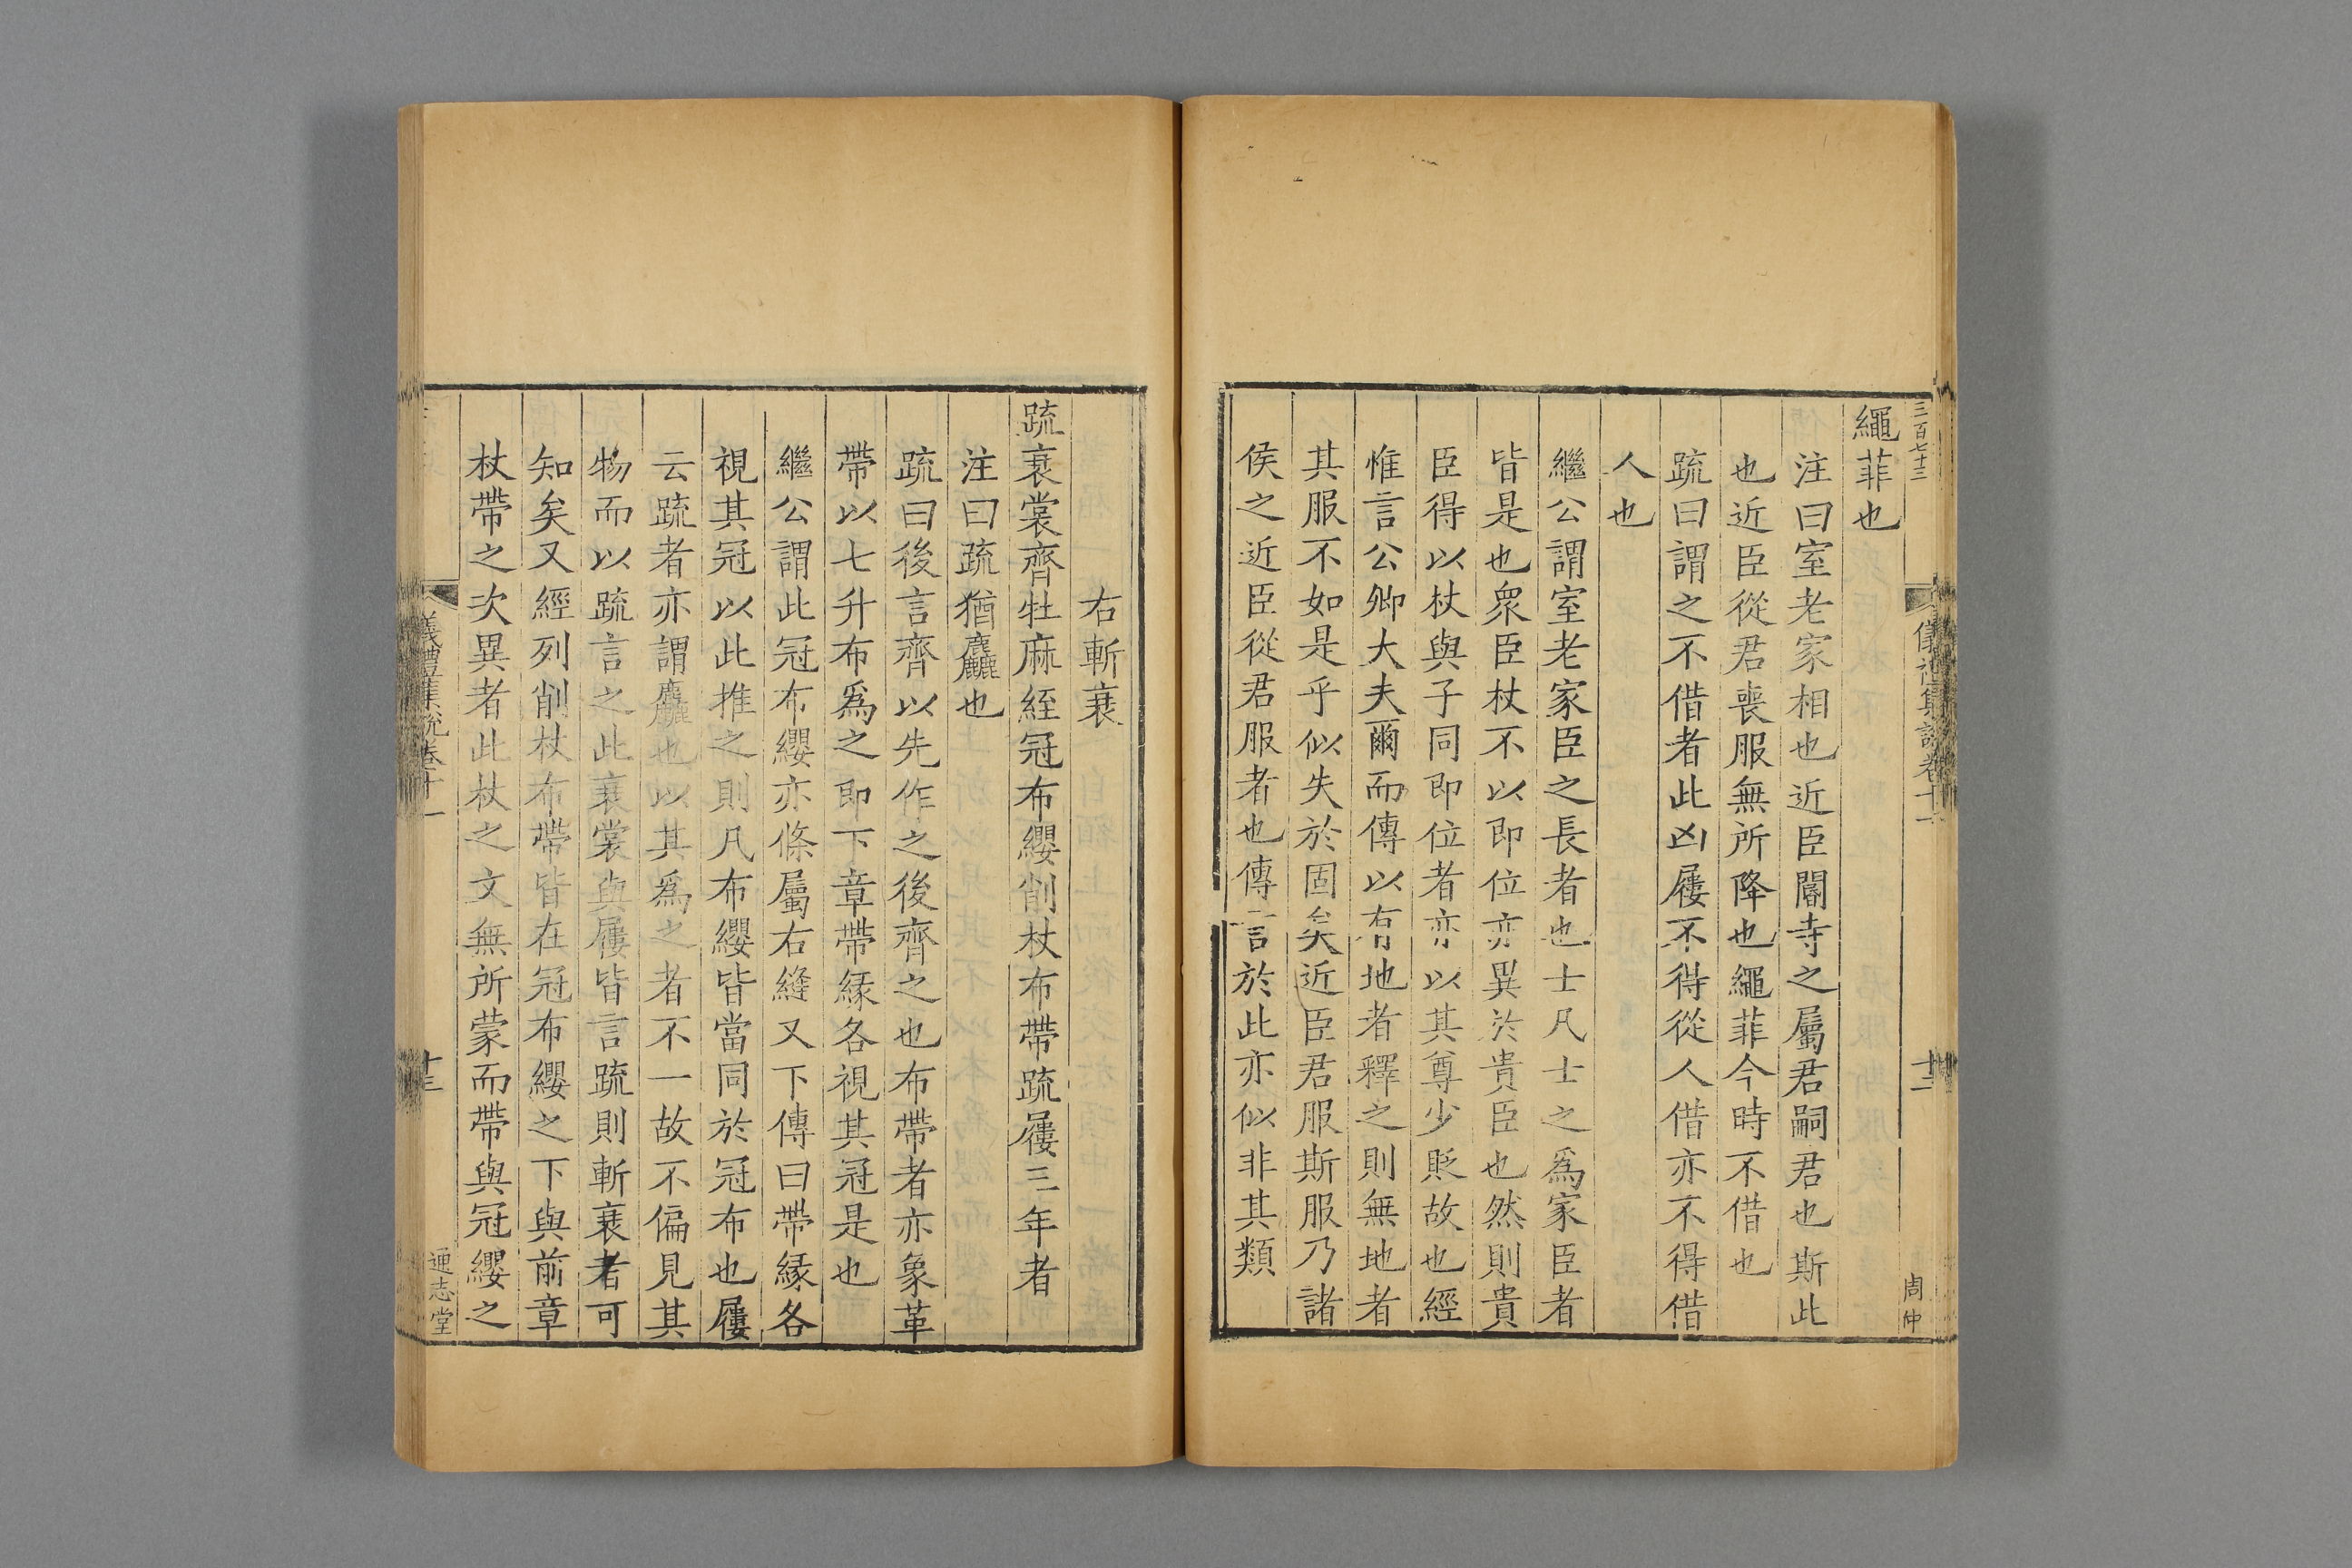 三百七十三
儀禮集說卷十一
十二
周仲
繩菲也
注曰室老家相也近臣閽寺之屬君嗣君也斯此
也近臣從君喪服無所降也繩菲今時不借也
疏曰謂之不借者此凶屨不得從人借亦不得借
人也
繼公謂室老家臣之長者也士凡士之為家臣者
皆是也衆臣杖不以即位亦異於貴臣也然則貴
臣得以杖與子同即位者亦以其尊少貶故也經
惟言公卿大夫爾而傳以有地者釋之則無地者
其服不如是乎似失於固矣近臣君服斯服乃諸
侯之近臣從君服者也傳言於此亦似非其類
右斬衰
疏衰裳齊牡麻絰冠布纓削杖布帶疏屨三年者
注曰疏猶麤也
疏曰後言齊以先作之後齊之也布帶者亦象革
帶以七升布爲之即下章帶緣各視其冠是也
繼公謂此冠布纓亦條屬右縫又下傳曰帶緣各
視其冠以此推之則凡布纓皆當同於冠布也屨
云疏者亦謂麤也以其爲之者不一故不偏見其
物而以疏言之此衰裳與屨皆言疏則斬衰者可
知矣又經列削杖布帶皆在冠布纓之下與前章
杖帶之次異者此杖之文無所蒙而帶與冠纓之
儀禮集說卷十一
十三
通志堂